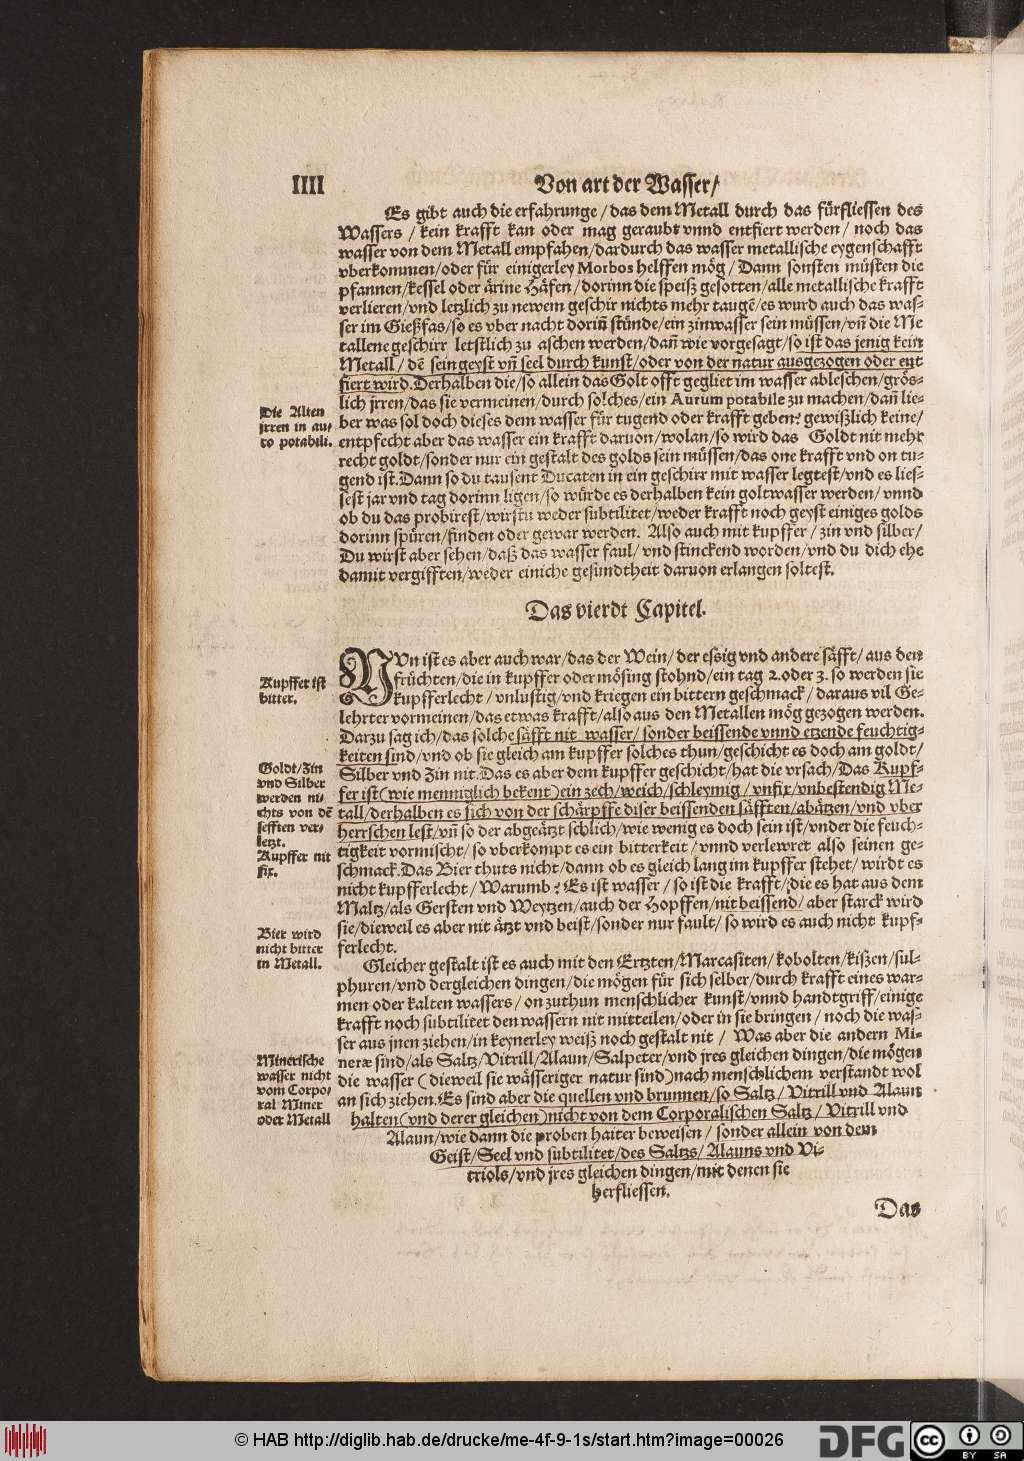 IIII
Von art der Wasser/
Es gibt auch die erfahrunge/das dem Metall durch das fürfliessen des
Wassers/kein krafft kan oder mag geraubt vnnd entfiert werden/noch das
wasser von dem Metall empfahen/dardurch das wasser metallische eygenschafft
vberkommen/oder für einigerley Morbos helffen mög/Dann sonsten müsten die
pfannen/kessel oder ärine Häfen/dorinn die speiß gesotten/alle metallische krafft
verlieren/vnd letzlich zu newem geschir nichts mehr taugẽ/es wurd auch das was-
ser im Gießfas/so es vber nacht dorin̄ stünde/ein zinwasser sein müssen/vn̄ die Me
tallene geschirr letstlich zu aschen werden/dan̄ wie vorgesagt/so ist das jenig kein
Metall/dẽ sein geyst vn̄ seel durch kunst/oder von der natur ausgezogen oder ent
fiert wird.Derhalben die/so allein das Golt offt gegliet im wasser ableschen/grös-
lich jrren/das sie vermeinen/durch solches/ein Aurum potabile zu machen/dan̄ lie-
ber was sol doch dieses dem wasser für tugend oder krafft geben? gewißlich keine/
entpfecht aber das wasser ein krafft daruon/wolan/so wird das Goldt nit mehr
recht goldt/sonder nur ein gestalt des golds sein müssen/das one krafft vnd on tu-
gend ist.Dann so du tausent Ducaten in ein geschirr mit wasser legtest/vnd es lies-
sest jar vnd tag dorinn ligen/so würde es derhalben kein goltwasser werden/vnnd
ob du das probirest/wirstu weder subtilitet/weder krafft noch geyst einiges golds
dorinn spüren/finden oder gewar werden. Also auch mit kupffer/zin vnd silber/
Du wirst aber sehen/daß das wasser faul/vnd stinckend worden/vnd du dich ehe
damit vergifften/weder einiche gesundtheit daruon erlangen soltest.
Die Alten
jrren in au-
ro potabili.
Das vierdt Capitel.
NVn ist es aber auch war/das der Wein/der essig vnd andere säfft/aus den
früchten/die in kupffer oder mösing stohnd/ein tag 2.oder 3.so werden sie
kupfferlecht/vnlustig/vnd kriegen ein bittern geschmack/daraus vil Ge-
lehrter vormeinen/das etwas krafft/also aus den Metallen mög gezogen werden.
Darzu sag ich/das solche säfft nit wasser/sonder beissende vnnd etzende feuchtig-
keiten sind/vnd ob sie gleich am kupffer solches thun/geschicht es doch am goldt/
Silber vnd Zin nit.Das es aber dem kupffer geschicht/hat die vrsach/Das Kupf-
fer ist(wie menniglich bekent)ein zech/weich/schleymig/vnfix/vnbestendig Me-
tall/derhalben es sich von der schärpffe diser beissenden säfften/abätzen/vnd vber
herrschen lest/vn̄ so der abgeätzt schlich/wie wenig es doch sein ist/vnder die feuch-
tigkeit vormischt/so vberkompt es ein bitterkeit/vnnd verlewret also seinen ge-
schmack.Das Bier thuts nicht/dann ob es gleich lang im kupffer stehet/wirdt es
nicht kupfferlecht/Warumb? Es ist wasser/so ist die krafft/die es hat aus dem
Maltz/als Gersten vnd Weytzen/auch der Hopffen/nit beissend/aber starck wird
sie/dieweil es aber nit ätzt vnd beist/sonder nur fault/so wird es auch nicht kupf-
ferlecht.
Kupffer ist
bitter.
Goldt/Zin
vnd Silber
werden ni-
chts von dẽ
sefften ver-
letzt.
Kupffer nit
fix.
Bier wird
nicht bitter
in Metall.
Gleicher gestalt ist es auch mit den Ertzten/Marcasiten/kobolten/kißen/sul-
phuren/vnd dergleichen dingen/die mögen für sich selber/durch krafft eines war-
men oder kalten wassers/on zuthun menschlicher kunst/vnnd handtgriff/einige
krafft noch subtilitet den wassern nit mitteilen/oder in sie bringen/noch die was-
ser aus jnen ziehen/in keynerley weiß noch gestalt nit/Was aber die andern Mi-
neræ sind/als Saltz/Vitrill/Alaun/Salpeter/vnd jres gleichen dingen/die mögen
die wasser (dieweil sie wässeriger natur sind)nach menschlichem verstandt wol
an sich ziehen.Es sind aber die quellen vnd brunnen/so Saltz/Vitrill vnd Alaun
halten(vnd derer gleichen)nicht von dem Corporalischen Saltz/Vitrill vnd
Alaun/wie dann die proben haiter beweisen/sonder allein von dem
Geist/Seel vnd subtilitet/des Saltzs/Alauns vnd Vi-
triols/vnd jres gleichen dingen/mit denen sie
herfliessen.
Minerische
wasser nicht
vom Corpo-
ral Miner
oder Metall
Das
© HAB http://diglib.hab.de/drucke/me-4f-9-1s/start.htm?image=00026
DFG
cc
BY SA